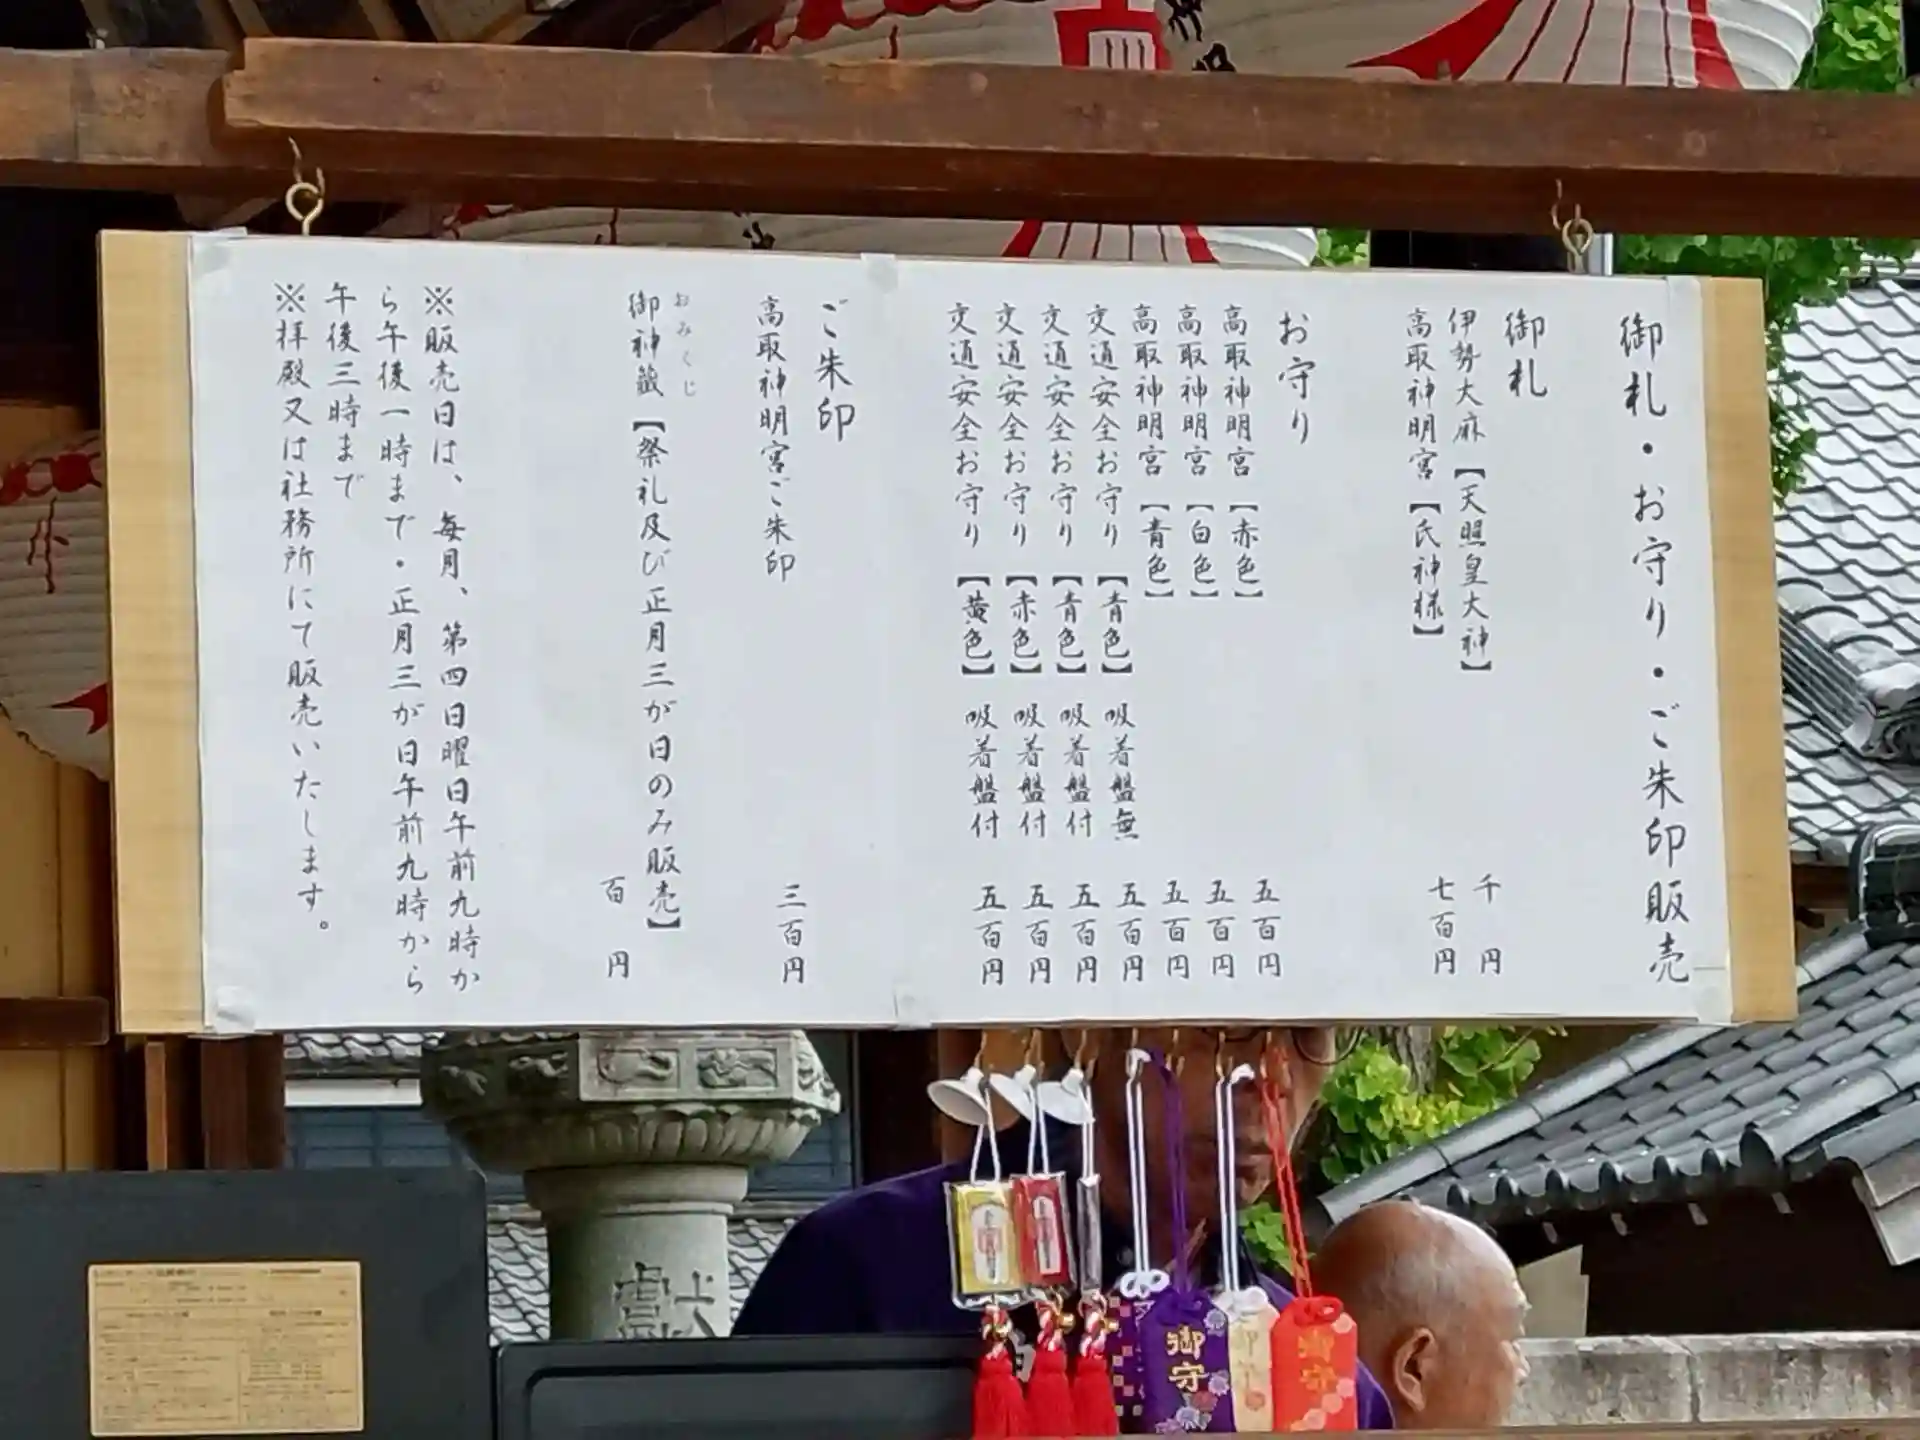 御札・お守り・ご朱印販売
御札
伊勢大麻【天照皇大神】 千円
高取神明宮【氏神様】 七百円
お守り
高取神明宮【赤色】 五百円
高取神明宮【白色】 五百円
高取神明宮【青色】 五百円
交通安全お守り【青色】 吸着盤無 五百円
交通安全お守り【青色】 吸着盤付 五百円
交通安全お守り【赤色】 吸着盤付 五百円
交通安全お守り【黄色】 吸着盤付 五百円
ご朱印
高取神明宮ご朱印 三百円
おみくじ
御神籤【祭礼及び正月三が日のみ販売】
百円
※販売日は、毎月、第四日曜日午前九時か
ら午後一時まで・正月三が日午前九時から
午後三時まで
※拝殿又は社務所にて販売いたします。
御守
御守
献